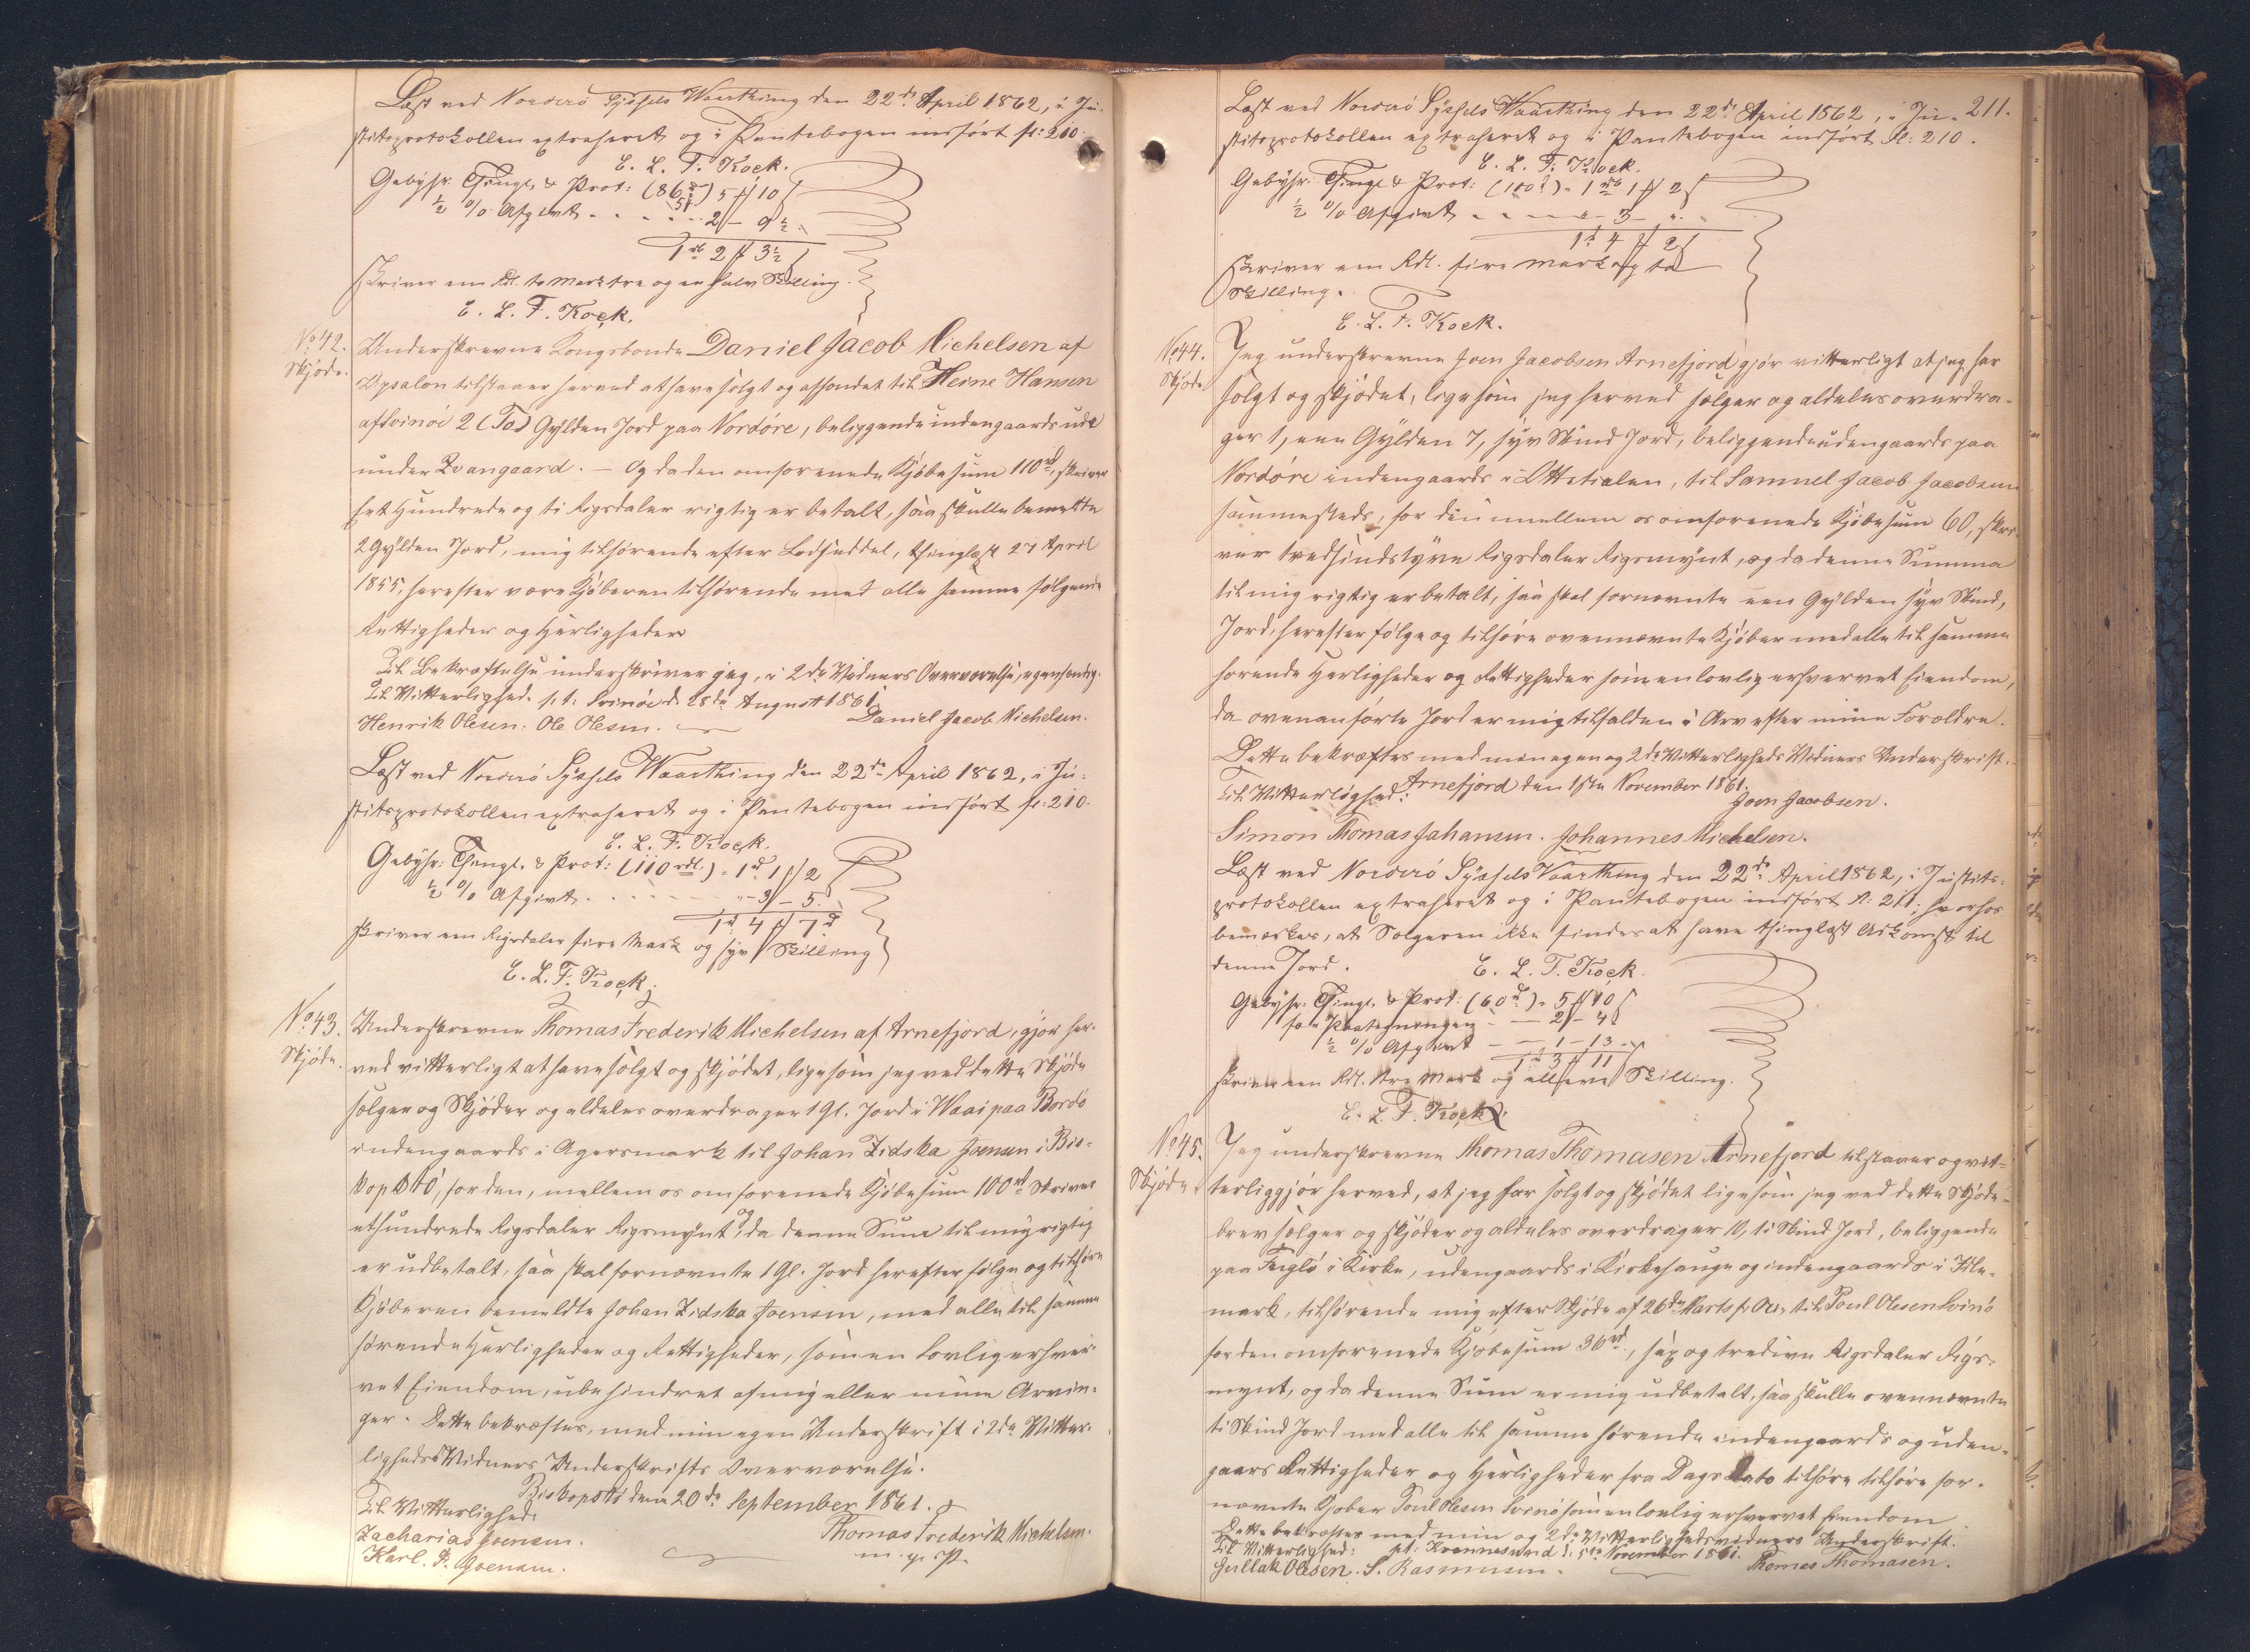 Læst ved Norderö Syssels Vaarthing den 22de April 1862, i Ju-
stitsprotokollen extraheret og i Pantebogen indført fl: 210.
E. L. F. Kock.
Gebyhr: Thingl. & Prot: (86rd) 5 ß 10
½ % Afgivt . . . . . 2 – 9½
1rd 2 ß 3½
skriver een Rdl. to Mark tre og en halv Skilling.
E. L. F. Kock.
No 42.
Skjøde.
Underskrevne Kongsbonde Daniel Jacob Michelsen af
Depsalon tilstaaer herved at have solgt og afhændet til Heine Hansen
af Svinöe 2 (To) Gylden Jord paa Nordöre, beliggende indengaards ude
under Qvangaard. – Og da den omforenede Kjöbesum 110rd, skriver
Eet Hundrede og ti Rigsdaler rigtig er betalt, saa skulle bemeldte
2 Gylden Jord, mig tilhørende efter Lodseddel, thinglæst 27 April
1855, herefter være Kjøberen tilhørende med alle samme følgende
Rettigheder og Herligheder.
Til Bekræftelse underskriver jeg, i 2de Vidners Overværelse, egenhændig.
Til Vitterlighed. p. t. Svinöe d. 28de August 1861.
Henrik Olesen. Ole Olesen.
Daniel Jacob Michelsen.
Læst ved Norderö Syssels Vaarthing den 22de April 1862, i Ju-
stitsprotokollen extraheret og i Pantebogen indført fl: 210.
E. L. F. Kock.
Gebyhr: Thingl. & Prot: (110 rdl.) = 1d 1 ß 2
½ % Afgivt . . . . . „ – 3 – 5.
1d 4 ß 7
skriver een Rigsdaler fire Mark og syv Skilling
E. L. F. Kock.
No 43.
Skjøde.
Underskrevne Thomas Frederik Michelsen af Arnefjord, gjør her-
ved vitterligt at have solgt og skjödet, ligesom jeg ved dette Skjöde
sælger og Skjöder og aldeles overdrager 1 Gl. Jord i Waai paa Bordö
indengaards i Agersmark til Johan Zidska Joensen i Bis-
kopstö, for den, mellem os omforenede Kjöbesum 100rd skriver
ethundrede Rigsdaler Rigsmynt, og da denne Sum til mig rigtig
er udbetalt, saa skal fornævnte 1 Gl. Jord herefter følge og tilhøre
Kjöberen bemeldte Johan Zidska Joensen, med alle til samme
hørende Herligheder og Rettigheder, som en lovlig erhver-
vet Eiendom, ubehindret af mig eller mine Arvin-
ger. Dette bekræftes, med min egen Underskrift i 2de Vitter-
ligheds Vidners Underskrifts Overværelse.
Biskopstö den 20de September 1861.
Til Vitterlighed:
Zacharias Joensen.
Karl. P. Joensen.
Thomas Frederik Michelsen.
m. f. P.
211.
Læst ved Norderö Syssels Vaarthing den 22de April 1862, i Ju-
stitsprotokollen extraheret og i Pantebogen indført fl: 210.
E. L. F. Kock.
Gebyhr: Thingl & Prot: (100d) = 1rd 1 ß 2
½ % Afgivt . . . . „ – 3 – „
1d 4 ß 2
skriver een Rdl. fire Mark og to
Skilling.
E. L. F. Kock.
No 44.
Skjøde
Jeg underskrevne Joen Jacobsen Arnefjord gjør vitterligt at jeg har
solgt og skjödet, ligesom jeg herved sælger og aldeles overdra-
ger 1, een Gylden 7, syv Skind Jord, beliggende udengaards paa
Nordöre indengaards i Ottetialen, til Samuel Jacob Jacobsen
sammesteds, for den imellem os omforenede Kjöbesum 60, skri-
ver tredsindstyve Rigsdaler Rigsmynt, og da denne Summa
til mig rigtig er betalt, saa skal fornævnte een Gylden syv Skind,
Jord, herefter følge og tilhøre ovennævnte Kjöber med alle til samme
hørende Herligheder og Rettigheder som en lovlig erhvervet Eiendom,
da ovenanførte Jord er mig tilfalden i Arv efter mine Forældre.
Dette bekræftes med min egen og 2de Vitterligheds Vidners Underskrift.
Arnefjord den 1ste November 1861.
Til Vitterlighed:
Joen Jacobsen.
Simon Thomas Johansen. Johannes Michelsen.
Læst ved Norderö Syssels Vaarthing den 22de April 1862, i Justits-
protokollen extraheret og i Pantebogen indført fl: 211; hvorhos
bemærkes, at Sælgeren ikke findes at have thinglæst Adkomst til
denne Jord.
E. L. F. Kock.
Gebyhr: Thingl. & Prot: (60d) = 5 ß 10
for Paategningen – – 2 – 4
½ % Afgivt – – 1 – 13
1d 3 ß 11
skriver een Rdl. tre Mark og elleve Skilling.
E. L. F. Kock.
No 45.
Skjøde.
Jeg underskrevne Thomas Thomasen Arnefjord tilstaaer og vit-
terliggjör herved, at jeg har solgt og skjödet ligesom jeg ved dette Skjöde-
brev sælger og skjöder og aldeles overdrager 10, ti Skind Jord, beliggende
paa Fuglö i Kirke, udengaards i Kirkehauge og indengaards i
mark, tilhørende mig efter Skjøde af 26de Marts f. A., til Poul Olesen Svinö
for den omforenede Kjöbesum 36rd, sex og tredive Rigsdaler Rigs-
mynt, og da denne Sum er mig udbetalt, saa skulle ovennævnte
ti Skind Jord med alle til samme hørende indengaards og uden-
gaars Rettigheder og Herligheder fra Dags Dato tilhøre tilhøre for-
nævnte Kjøber Poul Olesen Svinö som en lovlig erhvervet Eiendom
Dette bekræftes med min og 2de Vitterlighedsvidners Underskrift.
Til Vitterlighed: pt: Kvannesund d. 5te November 1861.
Gullak Olesen. S. Rasmusen.
Thomas Thomasen.